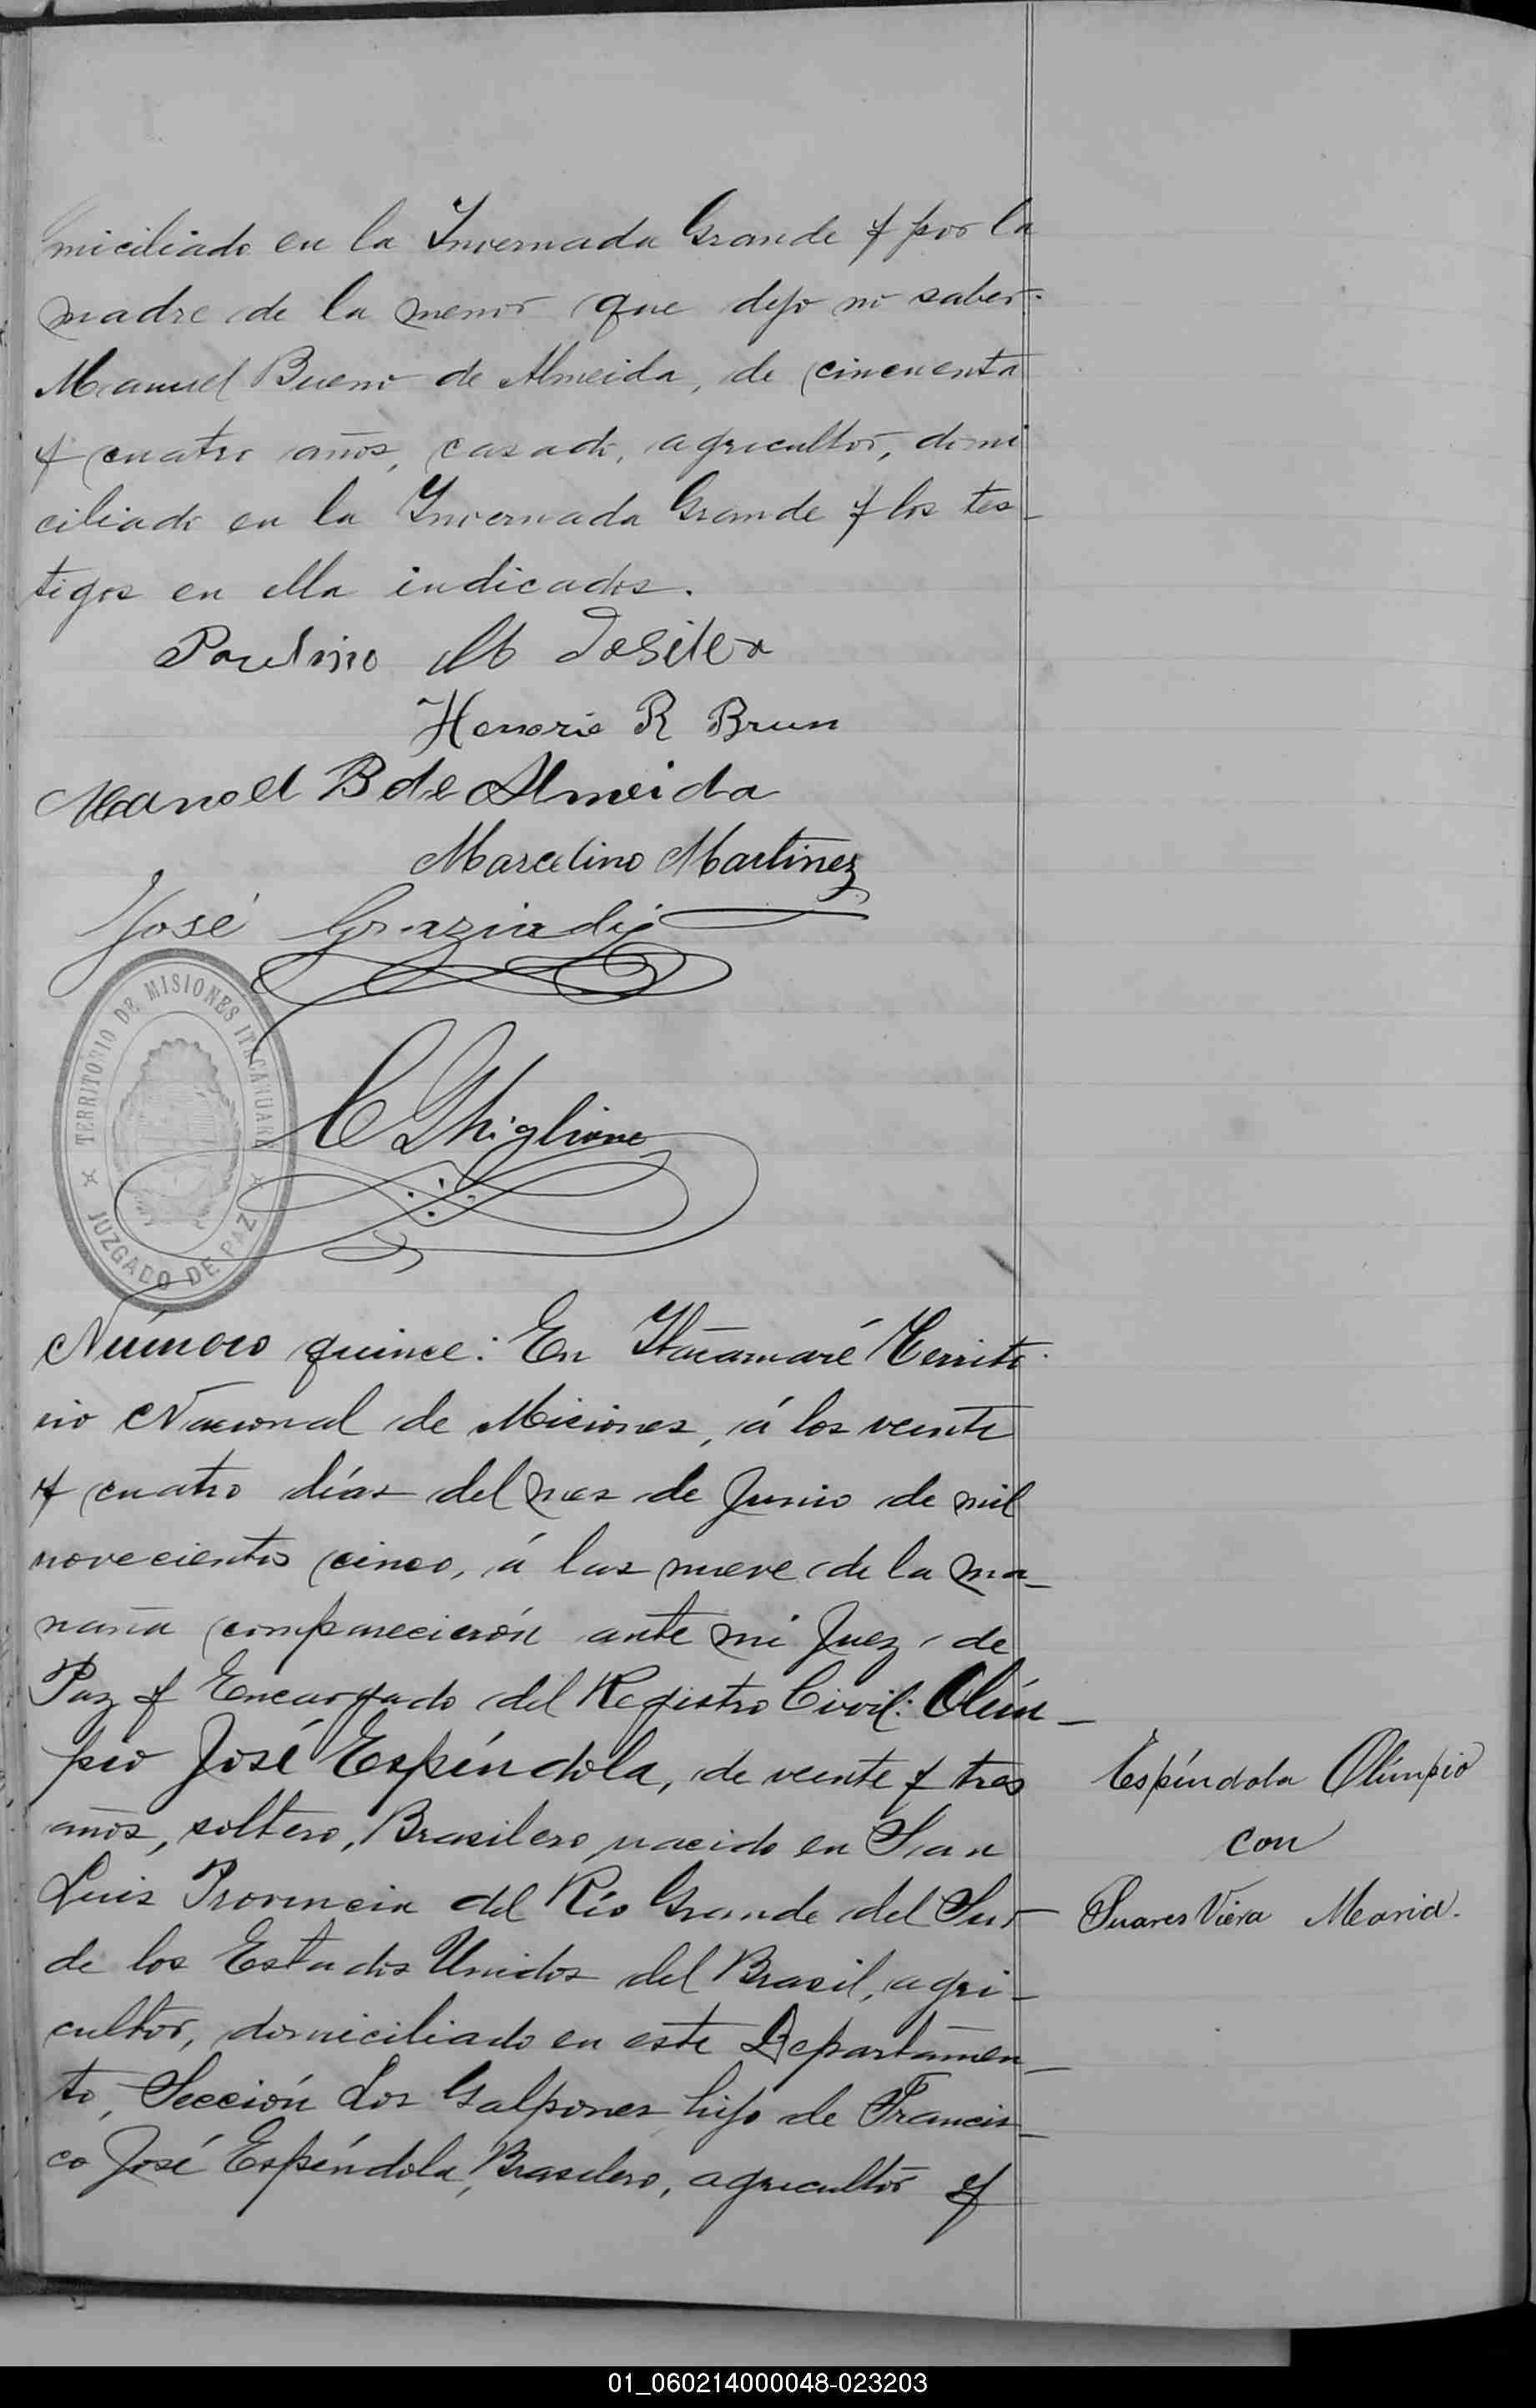 miciliado en la Invernada Grande y por la
madre de la menor que dijo no saber
Manuel Bueno de Almeida, de cincuenta
y cuatro años, casado, agricultor, domi
ciliado en la Invernada Grande y los tes-
tigos en ella indicados.
Paulino M
Honorio R Brun
Manoel B de Almeida
Marcelino Martinez
José Graziadij
TERRITORIO DE MISIONES ITACARUARE
JUZGADO DE PAZ
C Ghiglione
Número quince: En Itacaruaré Territo
rio Nacional de Misiones, á los veinte
y cuatro días del mes de Junio de mil
novecientos cinco, á las nueve de la ma-
ñana comparecierón ante mi Juez de
Paz y Encargado del Registro Civil: Olím-
pio José Espíndola, de veinte y tres
Espíndola Olimpio
años, soltero, Brasilero nacido en San
con
Luis Provincia del Río Grande del Sur
Suares Viera Maria.
de los Estados Unidos del Brasil, agri-
cultor, domiciliado en este Departamen-
to, Sección Los Galpones hijo de Francis-
co José Espíndola, Brasilero, agricultor y
01_060214000048-023203